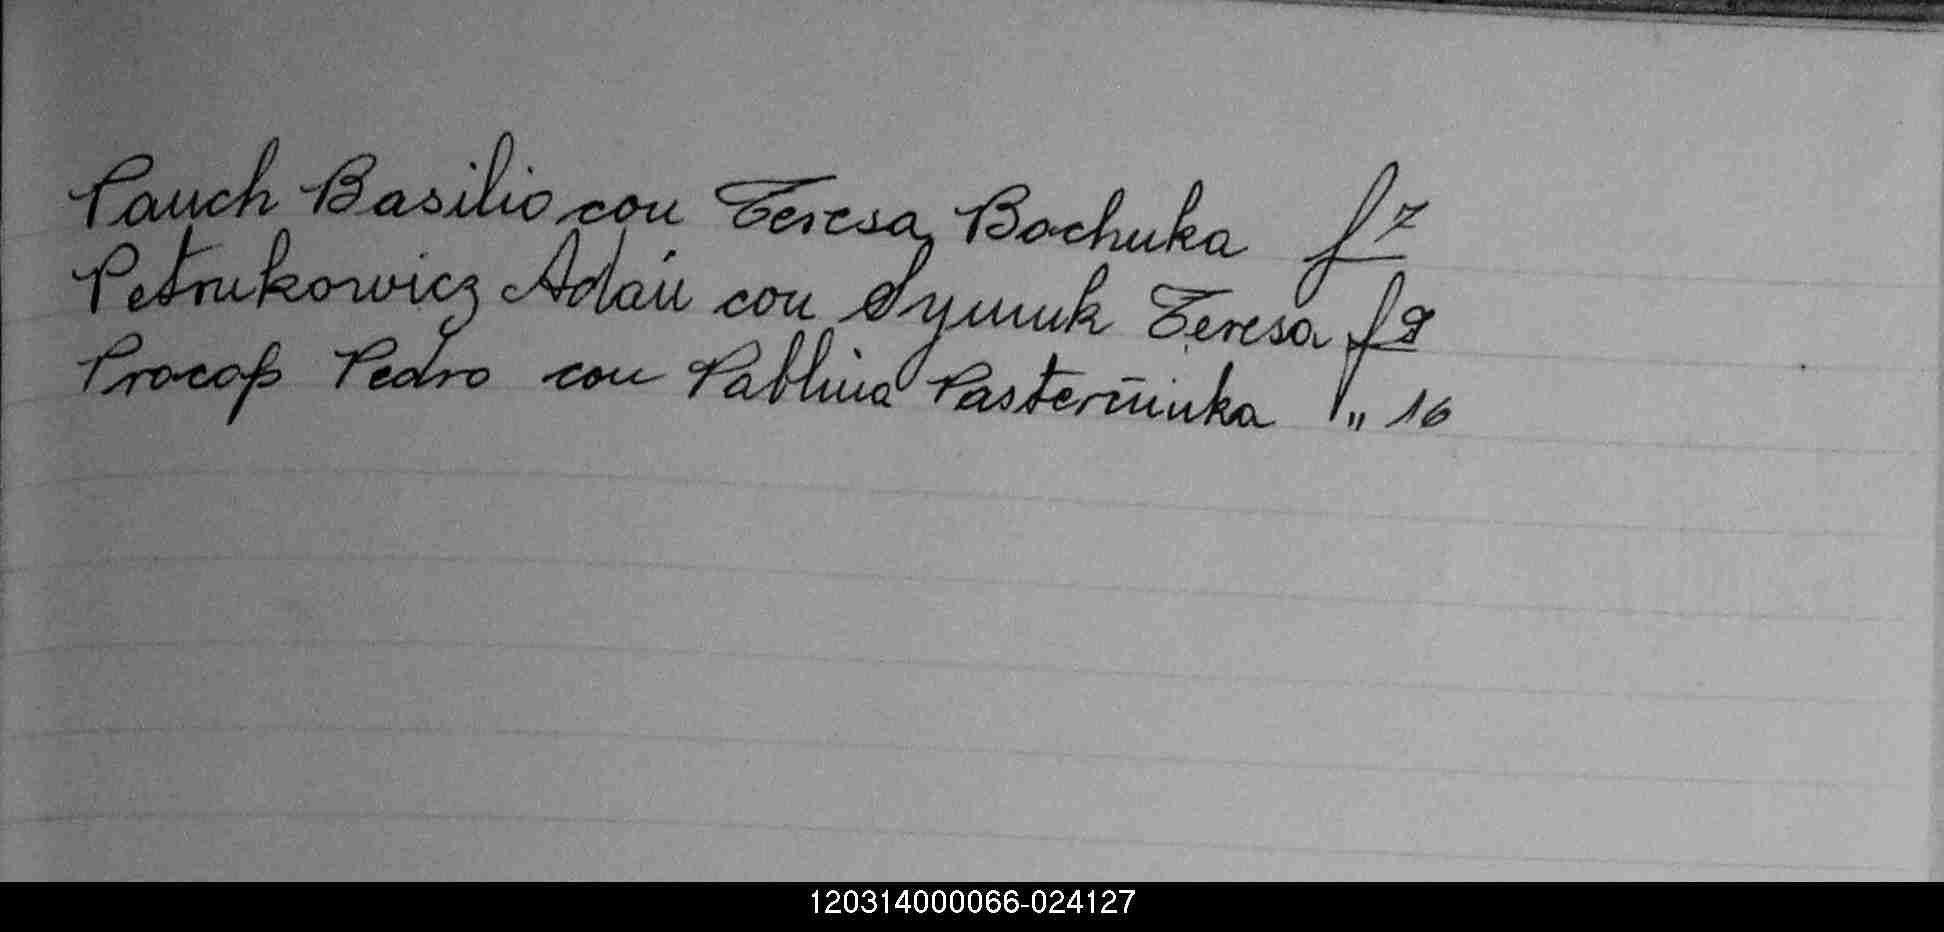 Pauch Basilio con Teresa Bachuka f 7
Petrukowicz Adán con Symuk Teresa f 9
Procop Pedro con Pablina Pasterñinka " 16
120314000066-024127